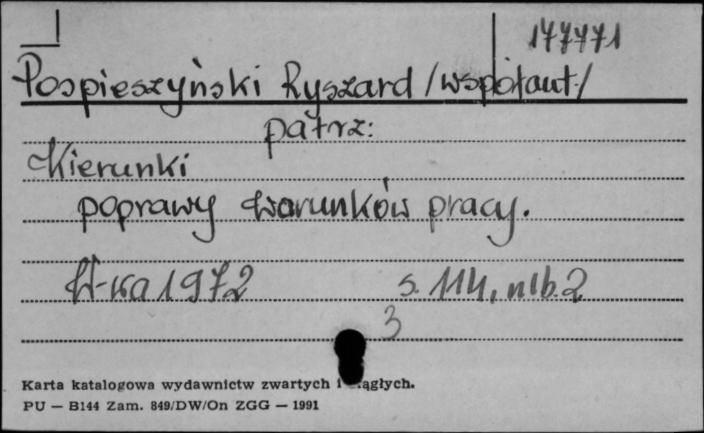 177471
Pospieszyński Ryszard /współaut./
patrz:
Kierunki
poprawy warunków pracy.
W-wa 1972 s. 114, nlb. 2
3
Karta katalogowa wydawnictw zwartych i ciągłych.
PU — B144 Zam. 849/DW/On ZGG — 1991